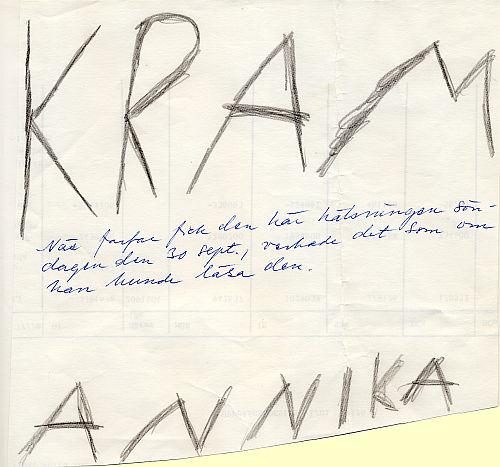 KRAM
När farfar fick den här hälsningen sön-
dagen den 30 sept., verkade det som om
han kunde läsa den.
ANNIKA